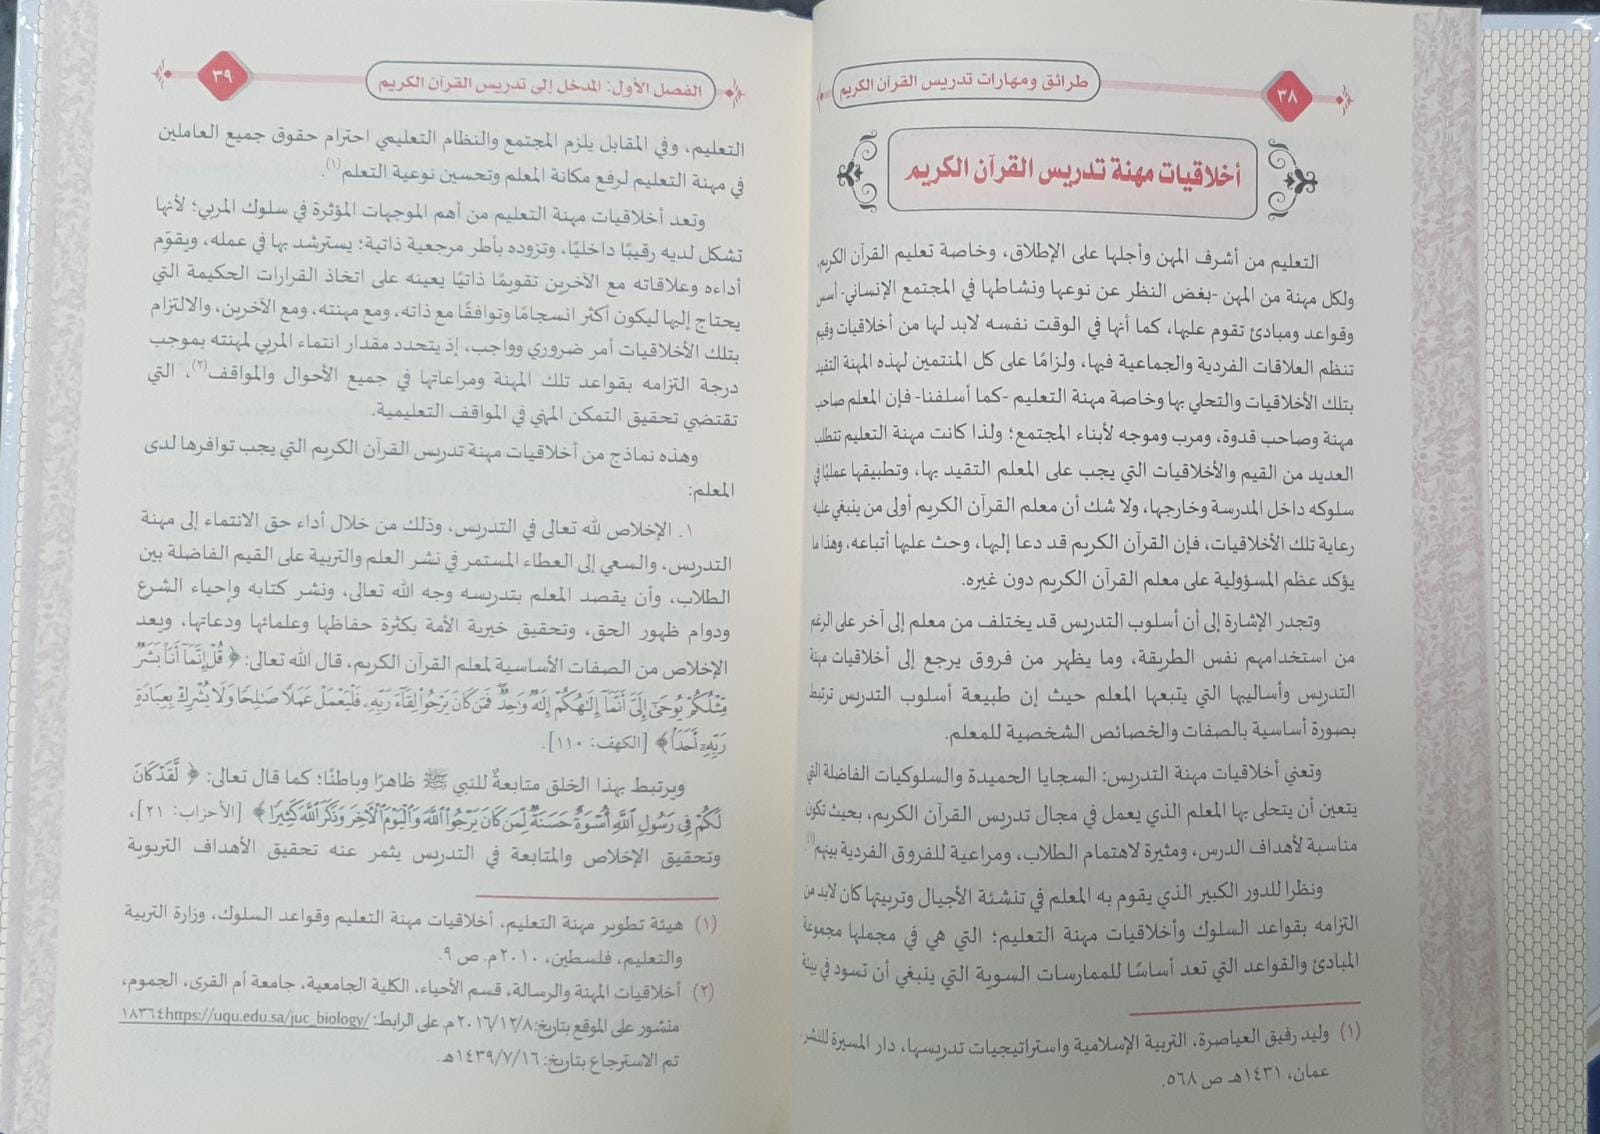 طرائق ومهارات تدريس القرآن الكريم
٣٨
أخلاقيات مهنة تدريس القرآن الكريم
التعليم من أشرف المهن وأجلها على الإطلاق، وخاصة تعليم القرآن الكريم،
ولكل مهنة من المهن -بغض النظر عن نوعها ونشاطها في المجتمع الإنساني- أسس
وقواعد ومبادئ تقوم عليها، كما أنها في الوقت نفسه لابد لها من أخلاقيات وقيم
تنظم العلاقات الفردية والجماعية فيها، ولزامًا على كل المنتمين لهذه المهنة التقيد
بتلك الأخلاقيات والتحلي بها وخاصة مهنة التعليم -كما أسلفنا- فإن المعلم صاحب
مهنة وصاحب قدوة، ومرب وموجه لأبناء المجتمع؛ ولذا كانت مهنة التعليم تتطلب
العديد من القيم والأخلاقيات التي يجب على المعلم التقيد بها، وتطبيقها عمليًا في
سلوكه داخل المدرسة وخارجها، ولا شك أن معلم القرآن الكريم أولى من ينبغي عليه
رعاية تلك الأخلاقيات، فإن القرآن الكريم قد دعا إليها، وحث عليها أتباعه، وهذا ما
يؤكد عظم المسؤولية على معلم القرآن الكريم دون غيره.
وتجدر الإشارة إلى أن أسلوب التدريس قد يختلف من معلم إلى آخر على الرغم
من استخدامهم نفس الطريقة، وما يظهر من فروق يرجع إلى أخلاقيات مهنة
التدريس وأساليبها التي يتبعها المعلم حيث إن طبيعة أسلوب التدريس ترتبط
بصورة أساسية بالصفات والخصائص الشخصية للمعلم.
وتعني أخلاقيات مهنة التدريس: السجايا الحميدة والسلوكيات الفاضلة التي
يتعين أن يتحلى بها المعلم الذي يعمل في مجال تدريس القرآن الكريم، بحيث تكون
مناسبة لأهداف الدرس، ومثيرة لاهتمام الطلاب، ومراعية للفروق الفردية بينهم(١).
ونظرا للدور الكبير الذي يقوم به المعلم في تنشئة الأجيال وتربيتها كان لابد من
التزامه بقواعد السلوك وأخلاقيات مهنة التعليم؛ التي هي في مجملها مجموعة
المبادئ والقواعد التي تعد أساسًا للممارسات السوية التي ينبغي أن تسود في بيئة
(١) وليد رفيق العياصرة، التربية الإسلامية واستراتيجيات تدريسها، دار المسيرة للنشر،
عمان، ١٤٣١هـ ص ٥٦٨.
الفصل الأول: المدخل إلى تدريس القرآن الكريم
٣٩
التعليم، وفي المقابل يلزم المجتمع والنظام التعليمي احترام حقوق جميع العاملين
في مهنة التعليم لرفع مكانة المعلم وتحسين نوعية التعلم(١).
وتعد أخلاقيات مهنة التعليم من أهم الموجهات المؤثرة في سلوك المربي؛ لأنها
تشكل لديه رقيبًا داخليًا، وتزوده بأطر مرجعية ذاتية؛ يسترشد بها في عمله، ويقوّم
أداءه وعلاقاته مع الآخرين تقويمًا ذاتيًا يعينه على اتخاذ القرارات الحكيمة التي
يحتاج إليها ليكون أكثر انسجامًا وتوافقًا مع ذاته، ومع مهنته، ومع الآخرين، والالتزام
بتلك الأخلاقيات أمر ضروري وواجب، إذ يتحدد مقدار انتماء المربي لمهنته بموجب
درجة التزامه بقواعد تلك المهنة ومراعاتها في جميع الأحوال والمواقف(٢)، التي
تقتضي تحقيق التمكن المهني في المواقف التعليمية.
وهذه نماذج من أخلاقيات مهنة تدريس القرآن الكريم التي يجب توافرها لدى
المعلم:
١. الإخلاص لله تعالى في التدريس، وذلك من خلال أداء حق الانتماء إلى مهنة
التدريس، والسعي إلى العطاء المستمر في نشر العلم والتربية على القيم الفاضلة بين
الطلاب، وأن يقصد المعلم بتدريسه وجه الله تعالى، ونشر كتابه وإحياء الشرع
ودوام ظهور الحق، وتحقيق خيرية الأمة بكثرة حفاظها وعلمائها ودعاتها، ويعد
الإخلاص من الصفات الأساسية لمعلم القرآن الكريم، قال الله تعالى: ﴿ قُلْ إِنَّمَآ أَنَا۠ بَشَرٌ
مِّثْلُكُمْ يُوحَىٰٓ إِلَىَّ أَنَّمَآ إِلَـٰهُكُمْ إِلَـٰهٌ وَٰحِدٌ ۖ فَمَن كَانَ يَرْجُوا۟ لِقَآءَ رَبِّهِۦ فَلْيَعْمَلْ عَمَلًا صَـٰلِحًا وَلَا يُشْرِكْ بِعِبَادَةِ
رَبِّهِۦٓ أَحَدًۢا ﴾ [الكهف: ١١٠].
ويرتبط بهذا الخلق متابعةٌ للنبي ﷺ ظاهرًا وباطنًا؛ كما قال تعالى: ﴿ لَّقَدْ كَانَ
لَكُمْ فِى رَسُولِ ٱللَّهِ أُسْوَةٌ حَسَنَةٌ لِّمَن كَانَ يَرْجُوا۟ ٱللَّهَ وَٱلْيَوْمَ ٱلْـَٔاخِرَ وَذَكَرَ ٱللَّهَ كَثِيرًا ﴾ [الأحزاب: ٢١]،
وتحقيق الإخلاص والمتابعة في التدريس يثمر عنه تحقيق الأهداف التربوية
(١) هيئة تطوير مهنة التعليم، أخلاقيات مهنة التعليم وقواعد السلوك، وزارة التربية
والتعليم، فلسطين، ٢٠١٠م. ص ٩.
(٢) أخلاقيات المهنة والرسالة، قسم الأحياء، الكلية الجامعية، جامعة أم القرى، الجموم،
منشور على الموقع بتاريخ: ٢٠١٦/١٢/٨م. على الرابط: https://uqu.edu.sa/juc_biology/١٨٣٦٤
تم الاسترجاع بتاريخ: ١٤٣٩/٧/١٦هـ.